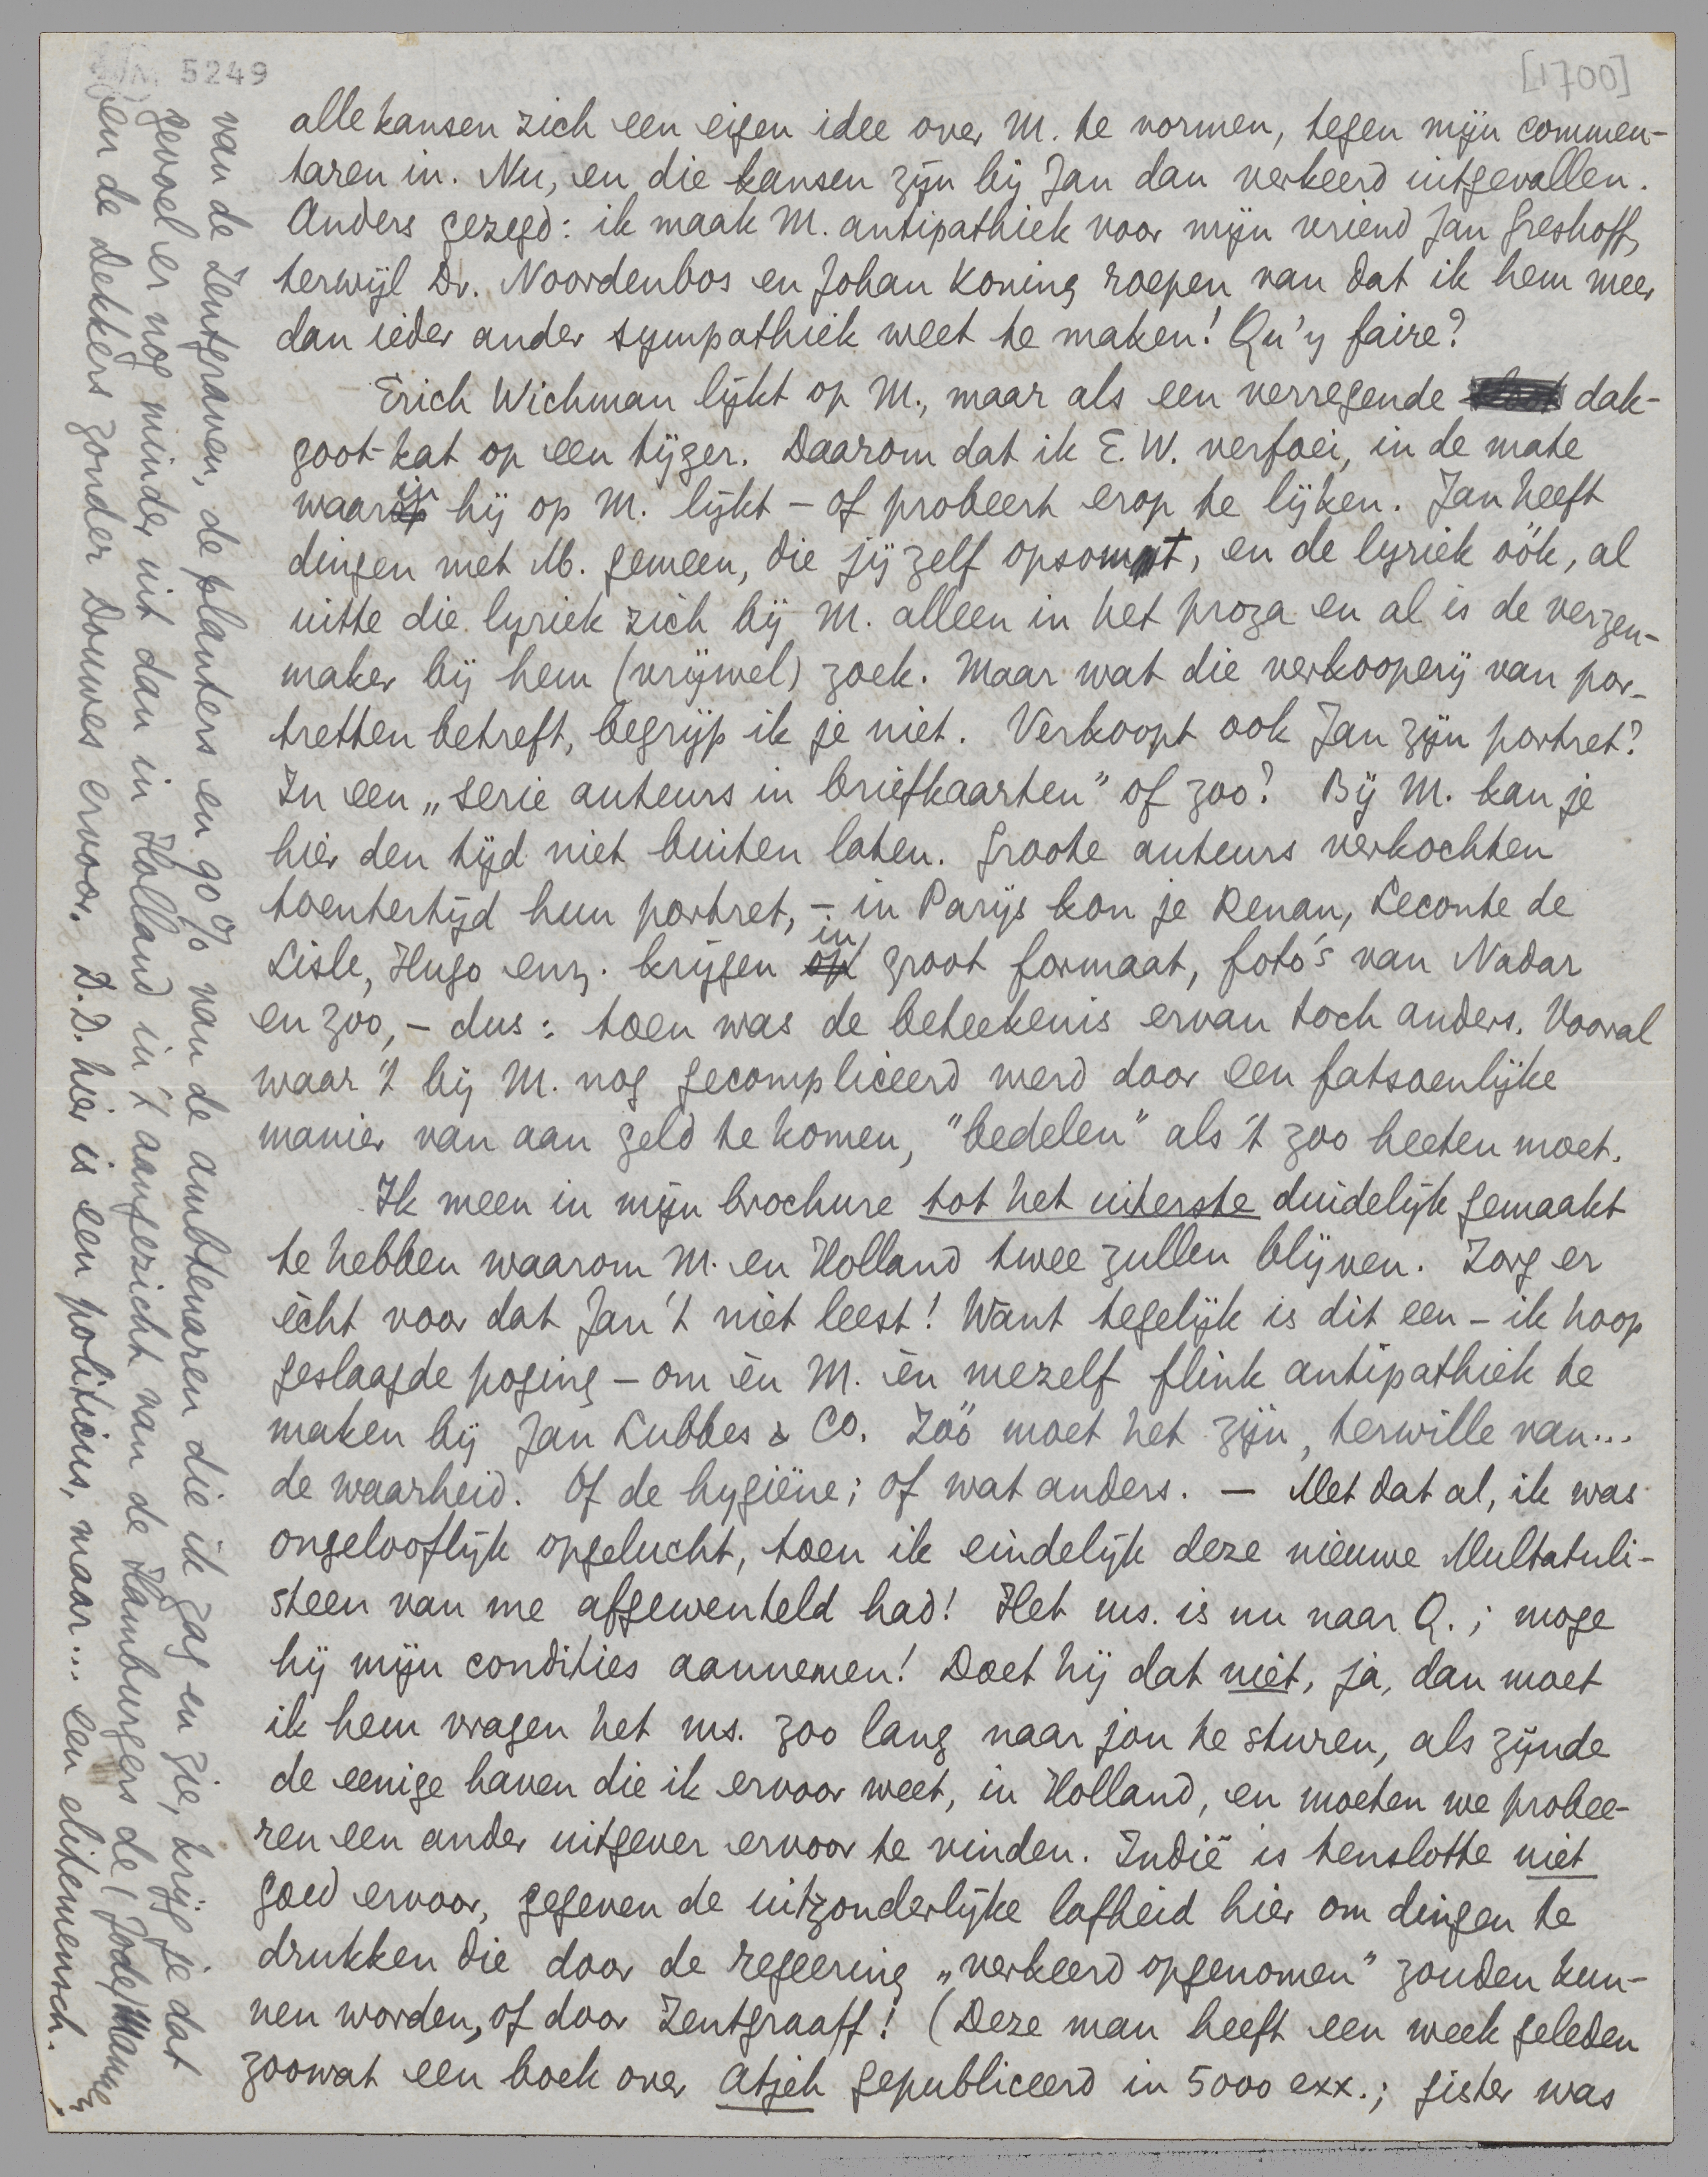 5249
[1700]
alle kansen zich een eigen idee over M. te vormen, tegen mijn commen-
taren in. Nu, en die kansen zijn bij Jan dan verkeerd uitgevallen.
Anders gezegd: ik maak M. antipathiek voor mijn vriend Jan Greshoff,
terwijl Dr. Noordenbos en Johan Koning roepen van dat ik hem meer
dan ieder ander sympathiek weet te maken! Qu'y faire?
Erich Wichman lijkt op M., maar als een verregende dak-
goot-kat op een tijger. Daarom dat ik E. W. verfoei, in de mate
waarin hij op M. lijkt – of probeert erop te lijken. Jan heeft
dingen met M. gemeen, die jij zelf opsomt, en de lyriek óók, al
uitte die lyriek zich bij M. alleen in het proza en al is de verzen-
maker bij hem (vrijwel) zoek. Maar wat die verkooperij van por-
tretten betreft, begrijp ik je niet. Verkoopt ook Jan zijn portret?
In een „serie auteurs in briefkaarten" of zoo? Bij M. kan je
hier den tijd niet buiten laten. Groote auteurs verkochten
toentertijd hun portret, – in Parijs kon je Renan, Leconte de
Lisle, Hugo enz. krijgen in groot formaat, foto's van Nadar
en zoo, – dus: toen was de beteekenis ervan toch anders. Vooral
waar 't bij M. nog gecompliceerd werd door een fatsoenlijke
manier van aan geld te komen, "bedelen" als 't zoo heeten moet.
Ik meen in mijn brochure tot het uiterste duidelijk gemaakt
te hebben waarom M. en Holland twee zullen blijven. Zorg er
ècht voor dat Jan 't niet leest! Want tegelijk is dit een – ik hoop
geslaagde poging – om èn M. èn mezelf flink antipathiek te
maken bij Jan Lubbes & Co. Zóó moet het zijn, terwille van...
de waarheid. Of de hygiëne; of wat anders. – Met dat al, ik was
ongelooflijk opgelucht, toen ik eindelijk deze nieuwe Multatuli-
steen van me afgewenteld had! Het ms. is nu naar Q.; moge
hij mijn condities aannemen! Doet hij dat niet, ja, dan moet
ik hem vragen het ms. zoo lang naar jou te sturen, als zijnde
de eenige haven die ik ervoor weet, in Holland, en moeten we probee-
ren een ander uitgever ervoor te vinden. Indië is tenslotte niet
goed ervoor, gegeven de uitzonderlijke lafheid hier om dingen te
drukken die door de regeering „verkeerd opgenomen" zouden kun-
nen worden, of door Zentgraaff! (Deze man heeft een week geleden
zoowat een boek over Atjeh gepubliceerd in 5000 exx.; gister was
van de Zentgraven, de planters en 90% van de ambtenaren die ik zag en zie, krijg je dat
gevoel er nog minder uit dan in Holland in 't aangezicht van de Hamburgers de (Jode) Mannen
en de Dekkers zonder Douwes ervoor. D.D. hier is een politicus, maar... een elitemensch.